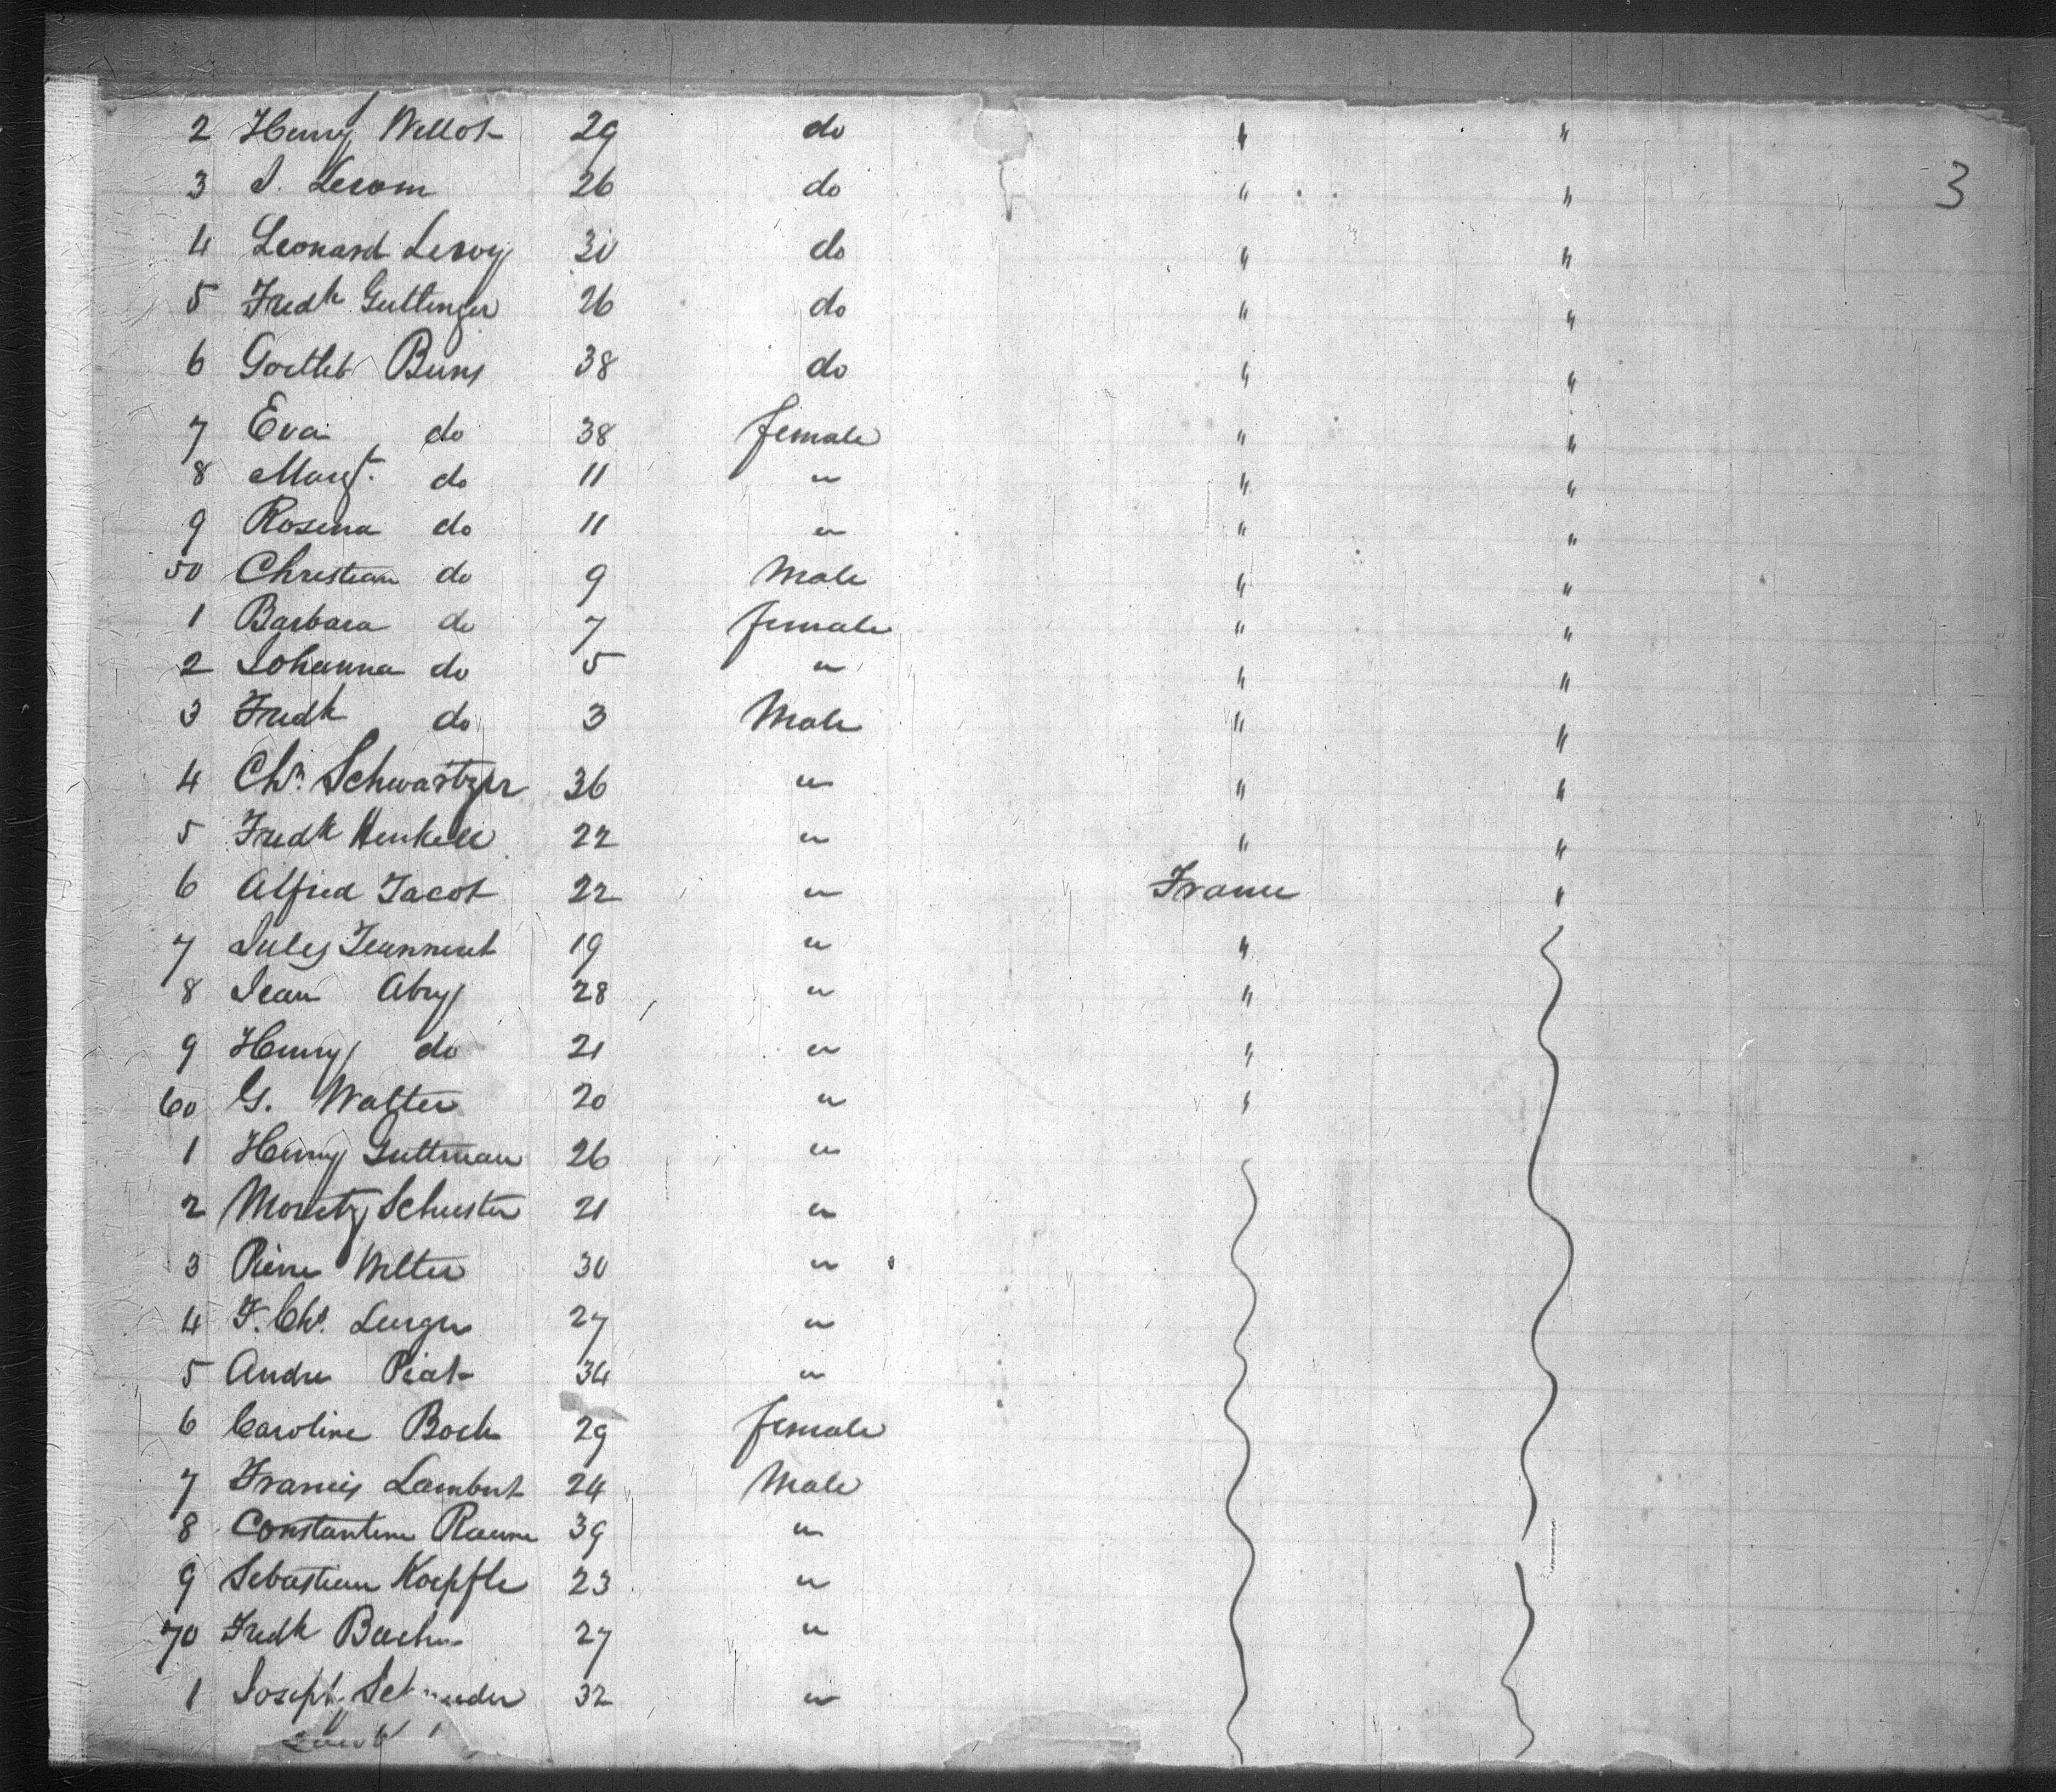 3
2 Henry Wellot 29 do " "
3 J. Lerom 26 do " "
4 Leonard Leroy 30 do " "
5 Fredk Guttinger 26 do " "
6 Gottleb Buns 38 do " "
7 Eva do 38 female " "
8 Margt. do 11 " " "
9 Rosina do 11 " " "
50 Christian do 9 Male " "
1 Barbara do 7 female " "
2 Johanna do 5 " " "
3 Fredk do 3 Male " "
4 Chn. Schwartzer 36 " " "
5 Fredk Henkell 22 " " "
6 Alfred Jacot 22 " France "
7 Jules Jeanneret 19 " "
8 Jean Abry 28 " "
9 Henry do 21 " "
60 G. Walter 20 " "
1 Henry Guttman 26 "
2 Moretz Schuster 21 "
3 Pierre Welter 30 "
4 F. Chs. Lurger 27 "
5 Andre Piat 34 "
6 Caroline Bock 29 female
7 Francis Lambert 24 Male
8 Constantine 39 "
9 Sebastian Koepfle 23 "
70 Fredk 27 "
1 Joseph 32 "